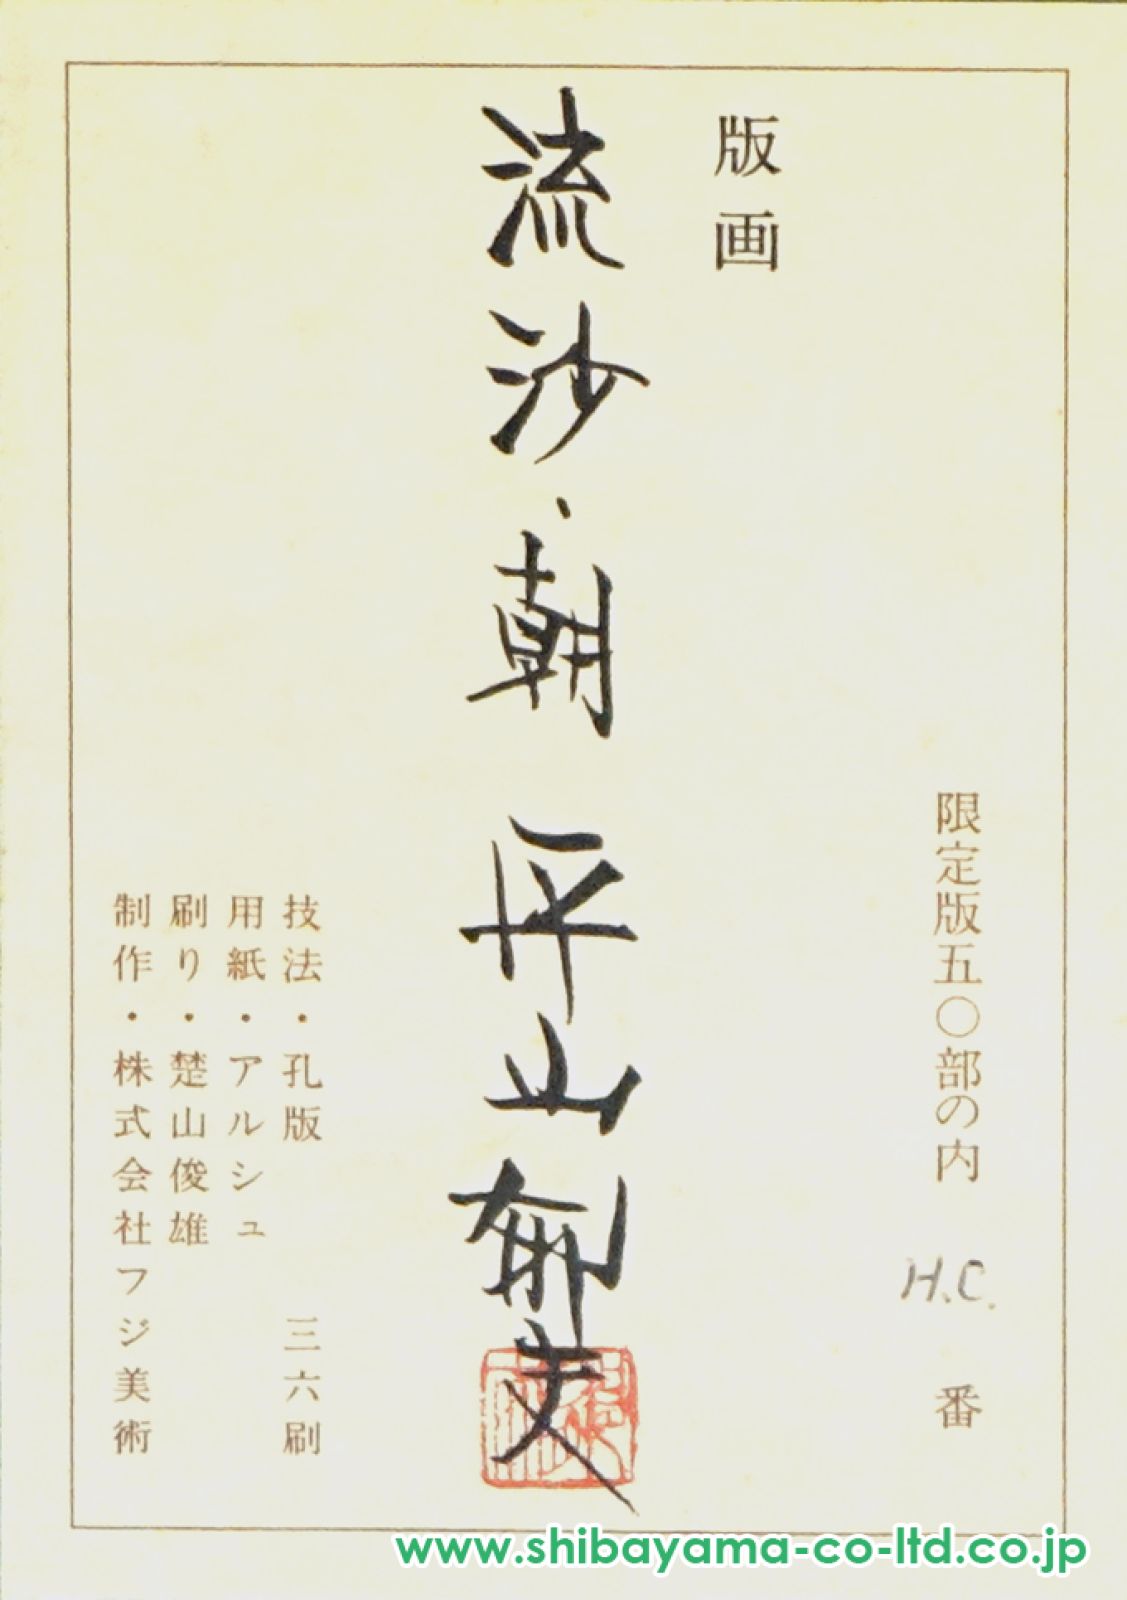 限定版五〇部の内 H.C. 番
版画
流沙・朝 平山郁夫
技法・孔版 三六刷
用紙・アルシュ
刷り・楚山俊雄
制作・株式会社フジ美術
www.shibayama-co-ltd.co.jp